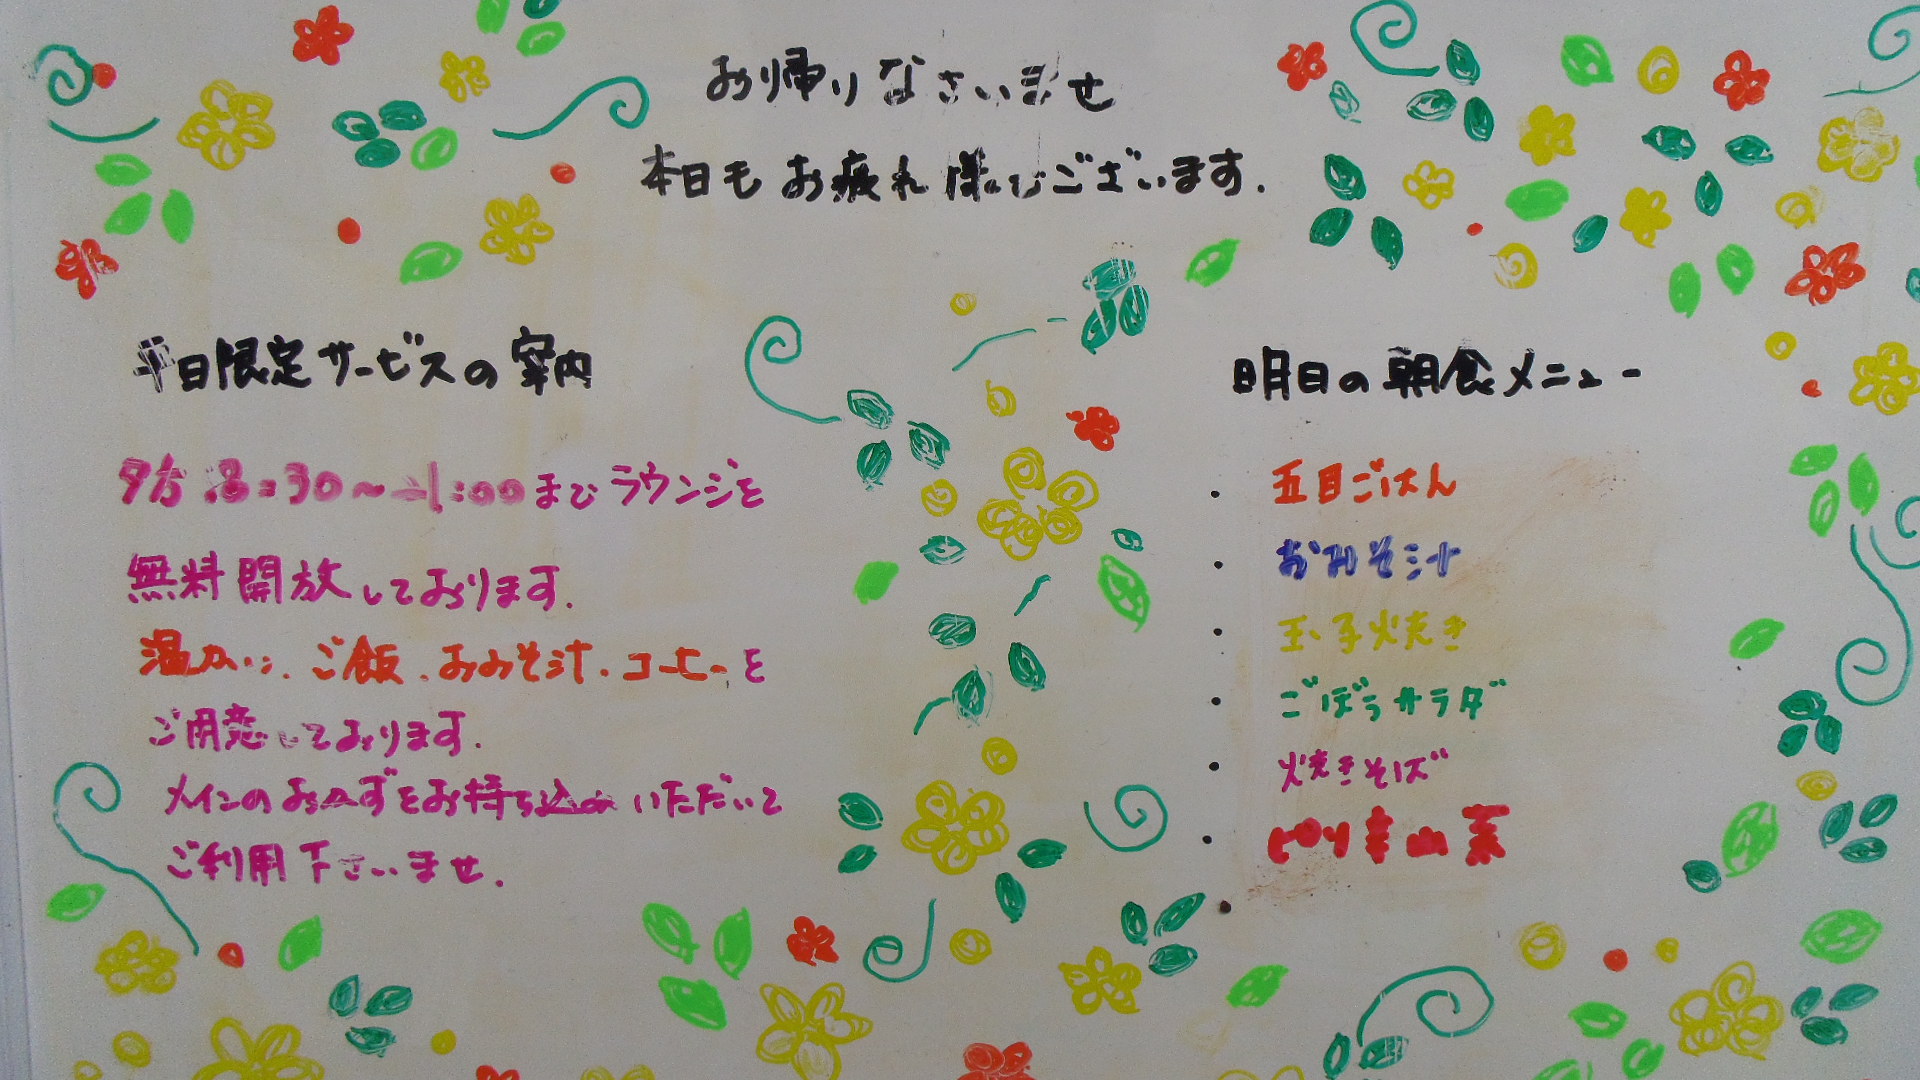 お帰りなさいませ
本日もお疲れ様でございます.
平日限定サービスの案内
夕方 :30〜 1:00までラウンジを
無料開放しております.
温かい、ご飯、おみそ汁・コーヒーを
ご用意しております.
メインのおかずをお持ち込みいただいて
ご利用下さいませ.
明日の朝食メニュー
・五目ごはん
・おみそ汁
・玉子焼き
・ごぼうサラダ
・焼きそば
・ピリ辛山菜